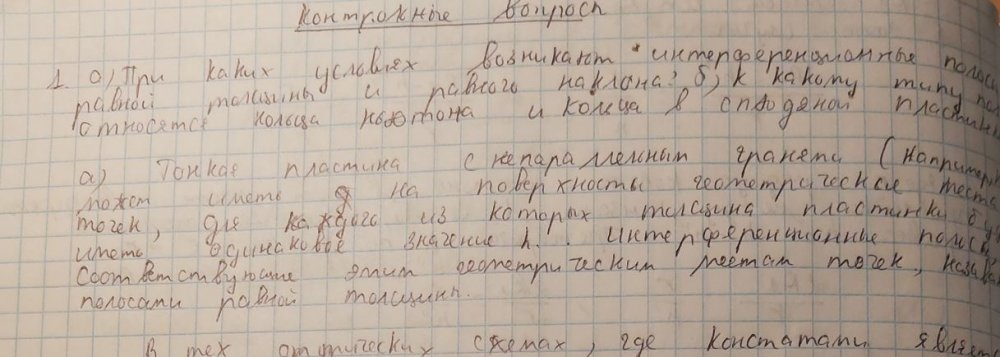 Контрольные вопросы
1. а) При каких условиях возникают интерференционные полосы
равной толщины и равного наклона? б) к какому типу
относятся кольца ньютона и кольца в слюдяной пластин
а) Тонкая пластина с непараллельными гранями (например
может иметь на поверхности геометрические места
точек, для каждого из которых толщина пластинки бу
иметь одинаковое значение h. Интерференционные полосы,
соответствующие этим геометрическим местам точек, назыв
полосами равной толщины.
В тех оптических схемах, где константами являет